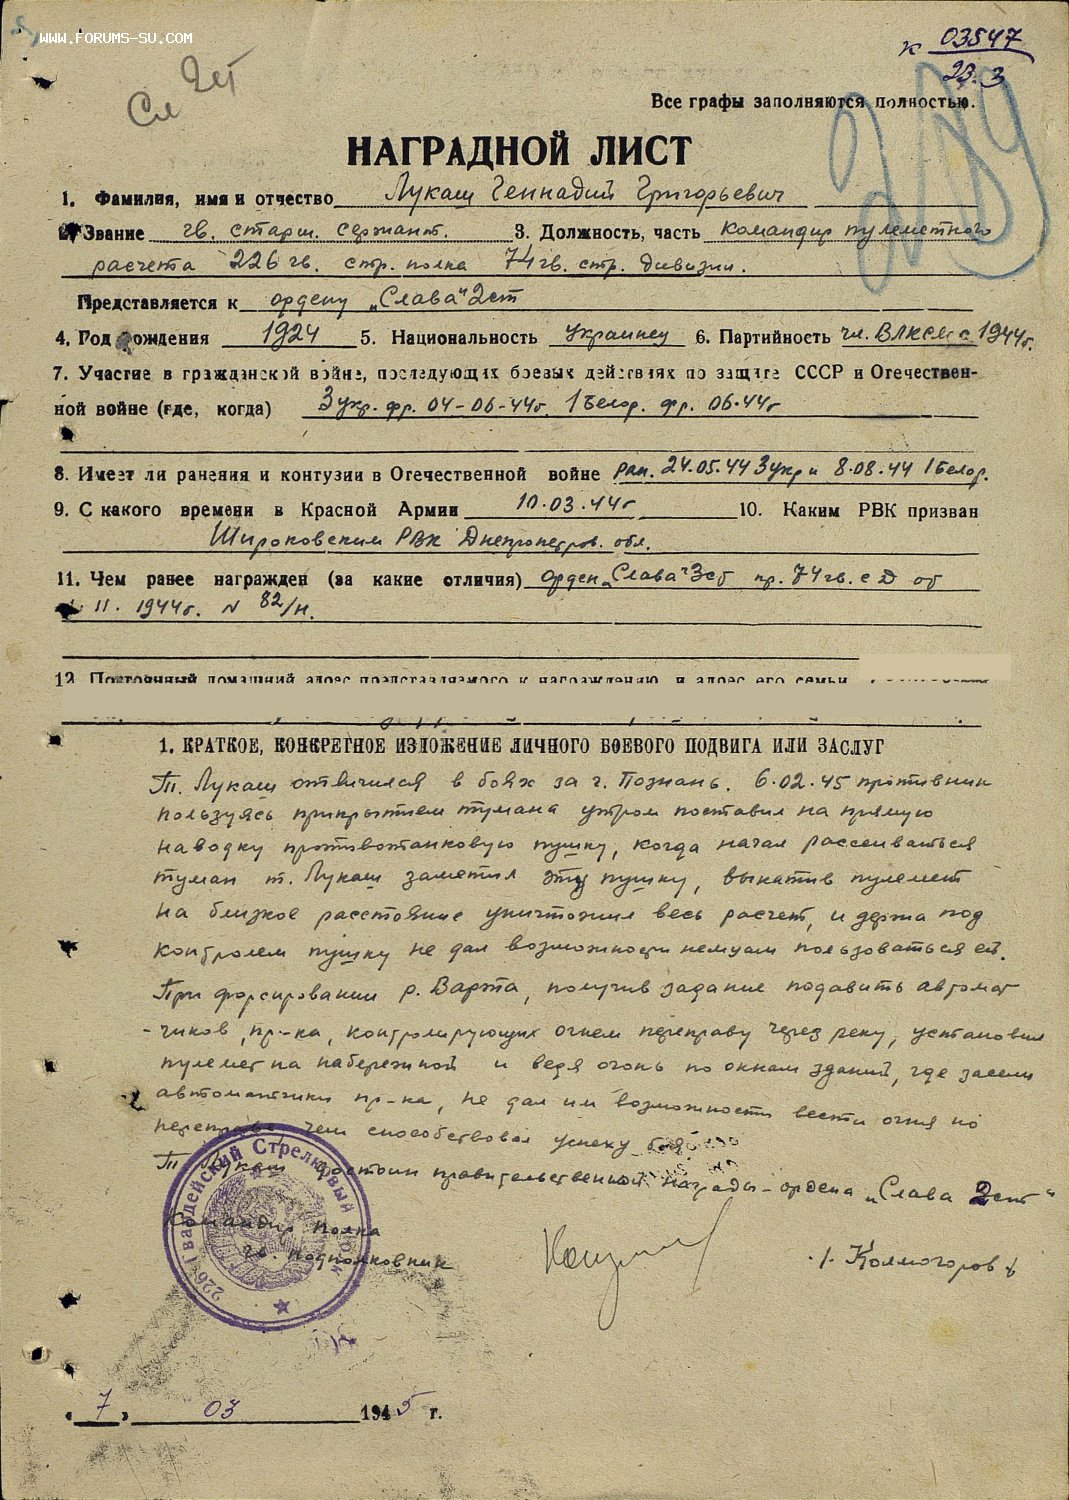 www.forums-su.com
к 03547
23.3
Сл 2ст
Все графы заполняются полностью.
НАГРАДНОЙ ЛИСТ
1. Фамилия, имя и отчество Лукаш Геннадий Григорьевич
2. Звание гв. старш. сержант. 3. Должность, часть командир пулеметного
расчета 226 гв. стр. полка 74 гв. стр. дивизии.
Представляется к ордену „Слава" 2ст
4. Год рождения 1924 5. Национальность украинец 6. Партийность чл. ВЛКСМ с 1944г.
7. Участие в гражданской войне, последующих боевых действиях по защите СССР и Отечествен-
ной войне (где, когда) 3 укр. фр. 04-06-44г. 1 Белор. фр. 06.44г
8. Имеет ли ранения и контузии в Отечественной войне ран. 24.05.44 3 укр и 8.08.44 1 Белор.
9. С какого времени в Красной Армии 10.03.44г 10. Каким РВК призван
Широковским РВК Днепропетров. обл.
11. Чем ранее награжден (за какие отличия) орден „Слава" 3ст пр. 74 гв. с Д от
11. 1944г. N 82/н.
12. Постоянный домашний адрес представляемого к награждению и адрес его семьи
1. КРАТКОЕ, КОНКРЕТНОЕ ИЗЛОЖЕНИЕ ЛИЧНОГО БОЕВОГО ПОДВИГА ИЛИ ЗАСЛУГ
Т. Лукаш отличился в боях за г. Познань. 6.02.45 противник
пользуясь прикрытием тумана утром поставил на прямую
наводку противотанковую пушку, когда начал рассеиваться
туман т. Лукаш заметил эту пушку, выкатив пулемет
на близкое расстояние уничтожил весь расчет, и держа под
контролем пушку не дал возможности немцам пользоваться ей.
При форсировании р. Варта, получив задание подавить автомат
-чиков пр-ка, контролирующих огнем переправу через реку, установил
пулемет на набережной и ведя огонь по окнам зданий, где засели
автоматчики пр-ка, не дал им возможности вести огня по
переправе чем способствовал успеху боя
Т. Лукаш достоин правительственной награды - ордена „Слава 2ст"
226 Гвардейский Стрелковый полк
Командир полка
гв. подполковник /Колмогоров/
„7" 03 1945 г.